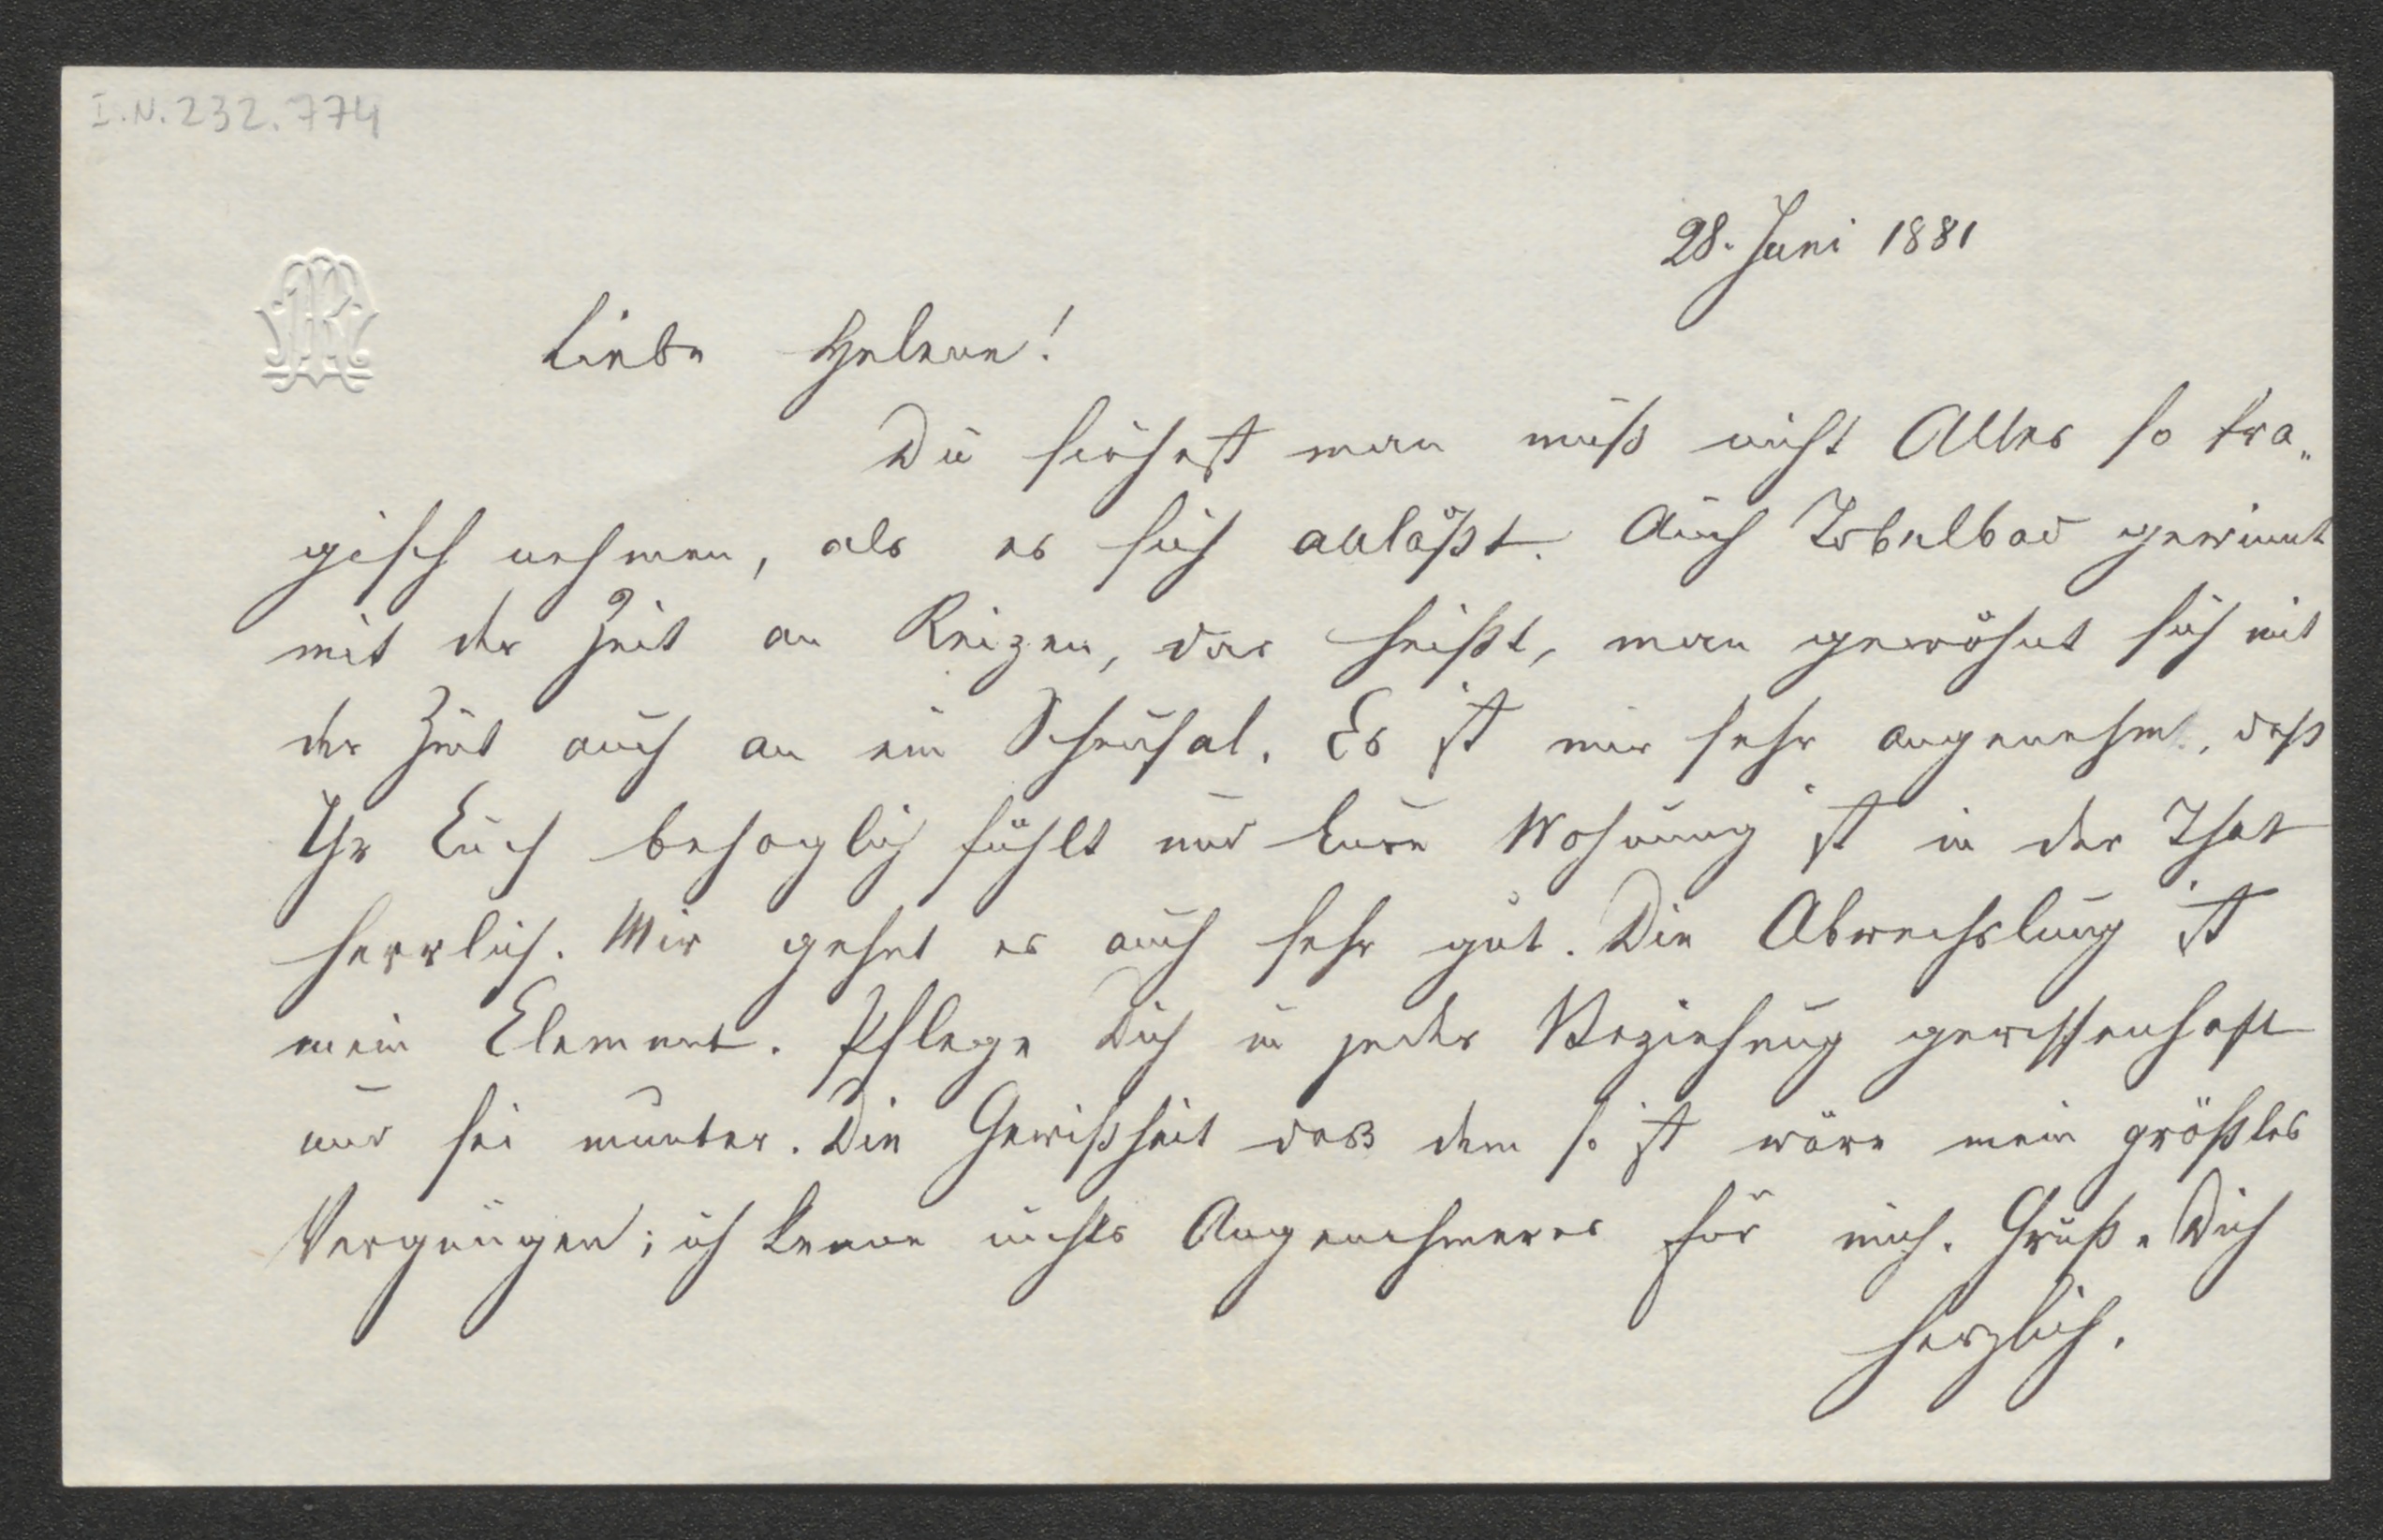 I.N. 232.774
28. Juni 1881
Liebe Helene!
Du siehest man muß nicht Alles so tra„
gisch nehmen, als es sich anläßt. Auch Tobelbad gewinnt
mit der Zeit an Reizen, das heißt, man gewöhnt sich mit
der Zeit auch an ein Scheusal. Es ist mir sehr angenehm, daß
Ihr Euch behaglich fühlt und Eure Wohnung ist in der That
herrlich. Mir gehet es auch sehr gut. Die Abwechslung ist
mein Element. Pflege Dich in jeder Beziehung gewissenhaft
und sei munter. Die Gewißheit daß dem so ist wäre mein größtes
Vergnügen; ich kenne nichts Angenehmeres für mich. Grüße Dich
herzlich.